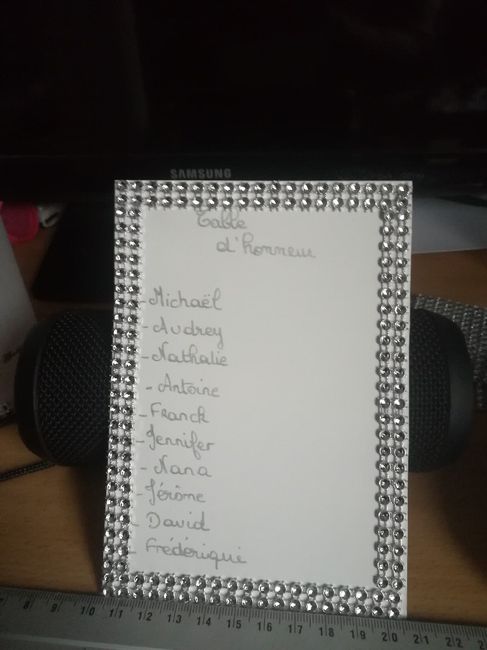 SAMSUNG
Table
d'honneur
-Michaël
-Audrey
-Nathalie
-Antoine
-Franck
-Jennifer
-Nana
-Jérôme
-David
-Frédérique
7 8 9 10 11 12 13 14 15 16 17 18 19 20 21 22